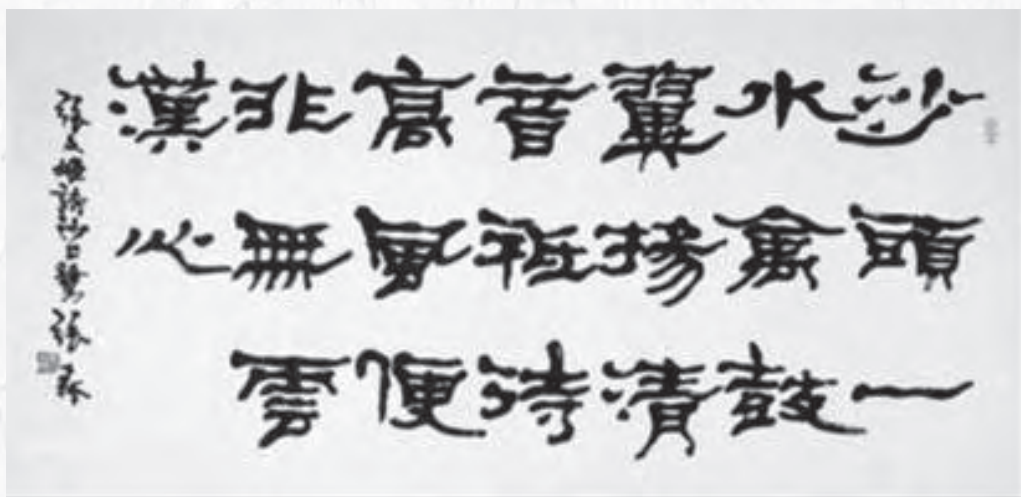 沙頭一
水禽鼓
翼揚清
音祗待
高風便
非無雲
漢心
張文姬詩沙上鷺 張森